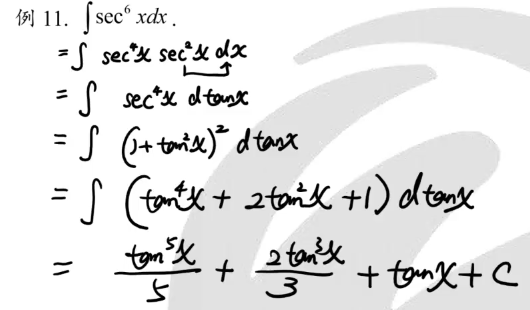 例 11. ∫sec⁶ xdx.
=∫ sec⁴x sec²x dx
=∫ sec⁴x dtanx
=∫ (1+tan²x)² dtanx
=∫ (tan⁴x + 2tan²x +1) dtanx
= tan⁵x/5 + 2tan³x/3 + tanx + C